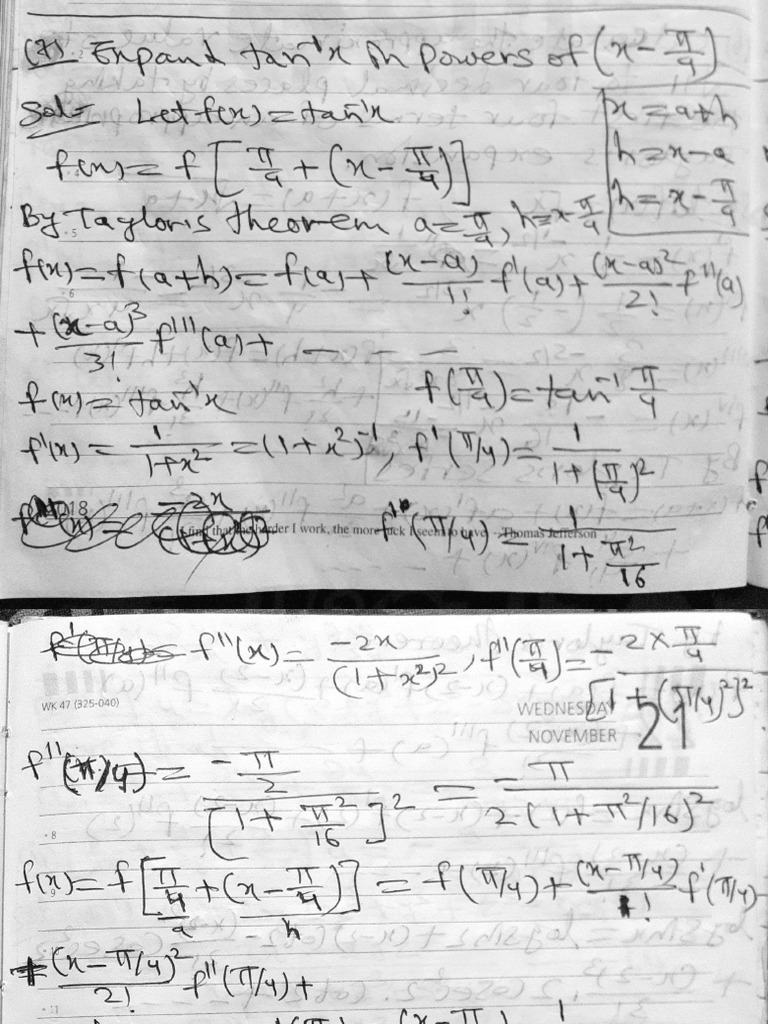 (7) Expand tan⁻¹x in powers of (x - π/4)
Sol:- Let f(x) = tan⁻¹x
x = a+h
h = x-a
h = x - π/4
f(x) = f[π/4 + (x - π/4)]
By Taylor's theorem a = π/4, h = x - π/4
f(x) = f(a+h) = f(a) + (x-a)/1! f'(a) + (x-a)²/2! f''(a)
+ (x-a)³/3! f'''(a) + - - -
f(x) = tan⁻¹x f(π/4) = tan⁻¹ π/4
f'(x) = 1/(1+x²) = (1+x²)⁻¹, f'(π/4) = 1/(1+(π/4)²)
2018
I find that the harder I work, the more luck I seem to have - Thomas Jefferson
f'(π/4) = 1/(1+π²/16)
f''(x) = -2x/(1+x²)², f''(π/4) = -2×π/4/[1+(π/4)²]²
WK 47 (325-040)
WEDNESDAY
NOVEMBER 21
f''(π/4) = -π/2/[1+π²/16]² = -π/2(1+π²/16)²
f(x) = f[π/4 + (x - π/4)] = f(π/4) + (x-π/4)/1! f'(π/4)
a h
+ (x-π/4)²/2! f''(π/4) +